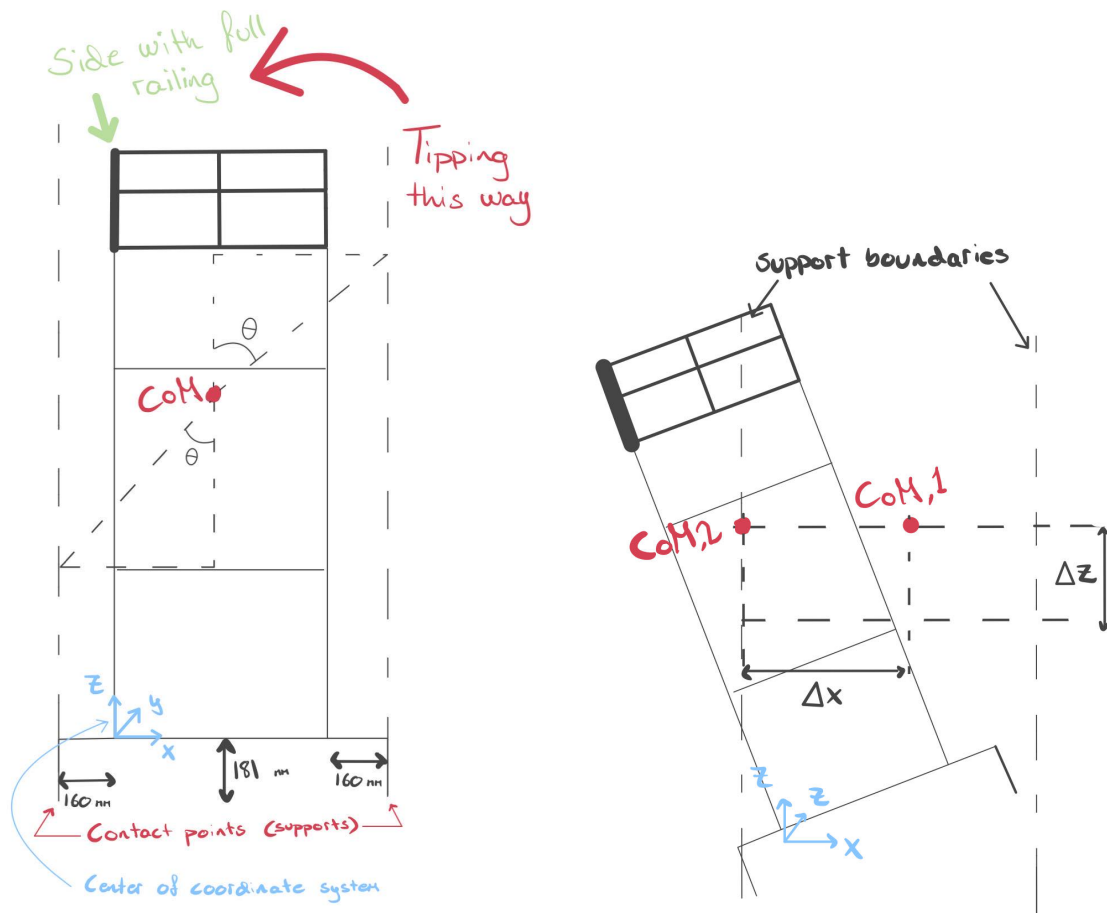 Side with full
railing
Tipping
this way
θ
CoM
θ
z
y
x
181 mm
160 mm
160 mm
Contact points (supports)
Center of coordinate system
support boundaries
CoM,1
CoM,2
Δz
Δx
z
z
x